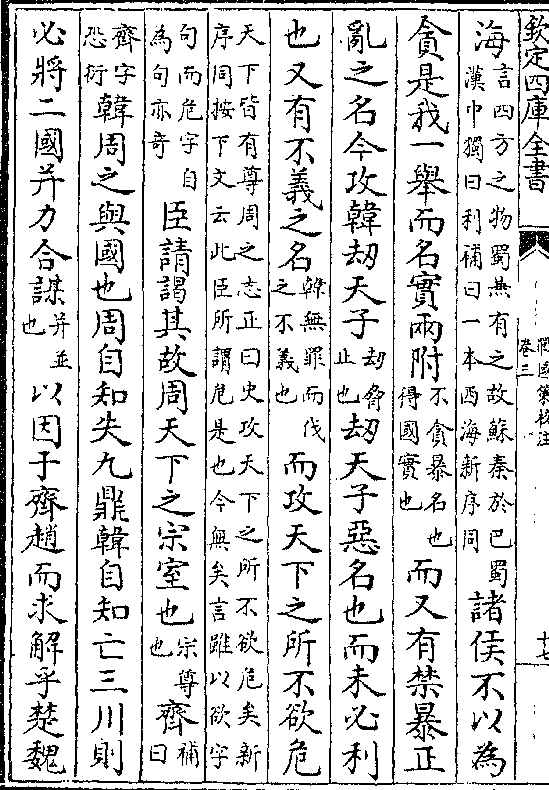 欽定四庫全書
戰國策校注
卷三
十七
海言四方之物蜀無有之故蘇秦於巴蜀漢中獨曰利補曰一本西海新序同諸侯不以為
貪是我一舉而名實兩附不貪暴名也得國實也而又有禁暴正
亂之名今攻韓劫天子劫脅止也劫天子惡名也而未必利
也又有不義之名韓無罪而伐之不義也而攻天下之所不欲危
天下皆有尊周之志正曰史攻天下之所不欲危矣新
序同按下文云此臣所謂危是也今無矣言雖以欲字
句而危字自為句亦竒臣請謁其故周天下之宗室也宗尊也齊補曰
齊字恐衍韓周之與國也周自知失九鼎韓自知亡三川則
必將二國并力合謀并並也以因于齊趙而求解乎楚魏